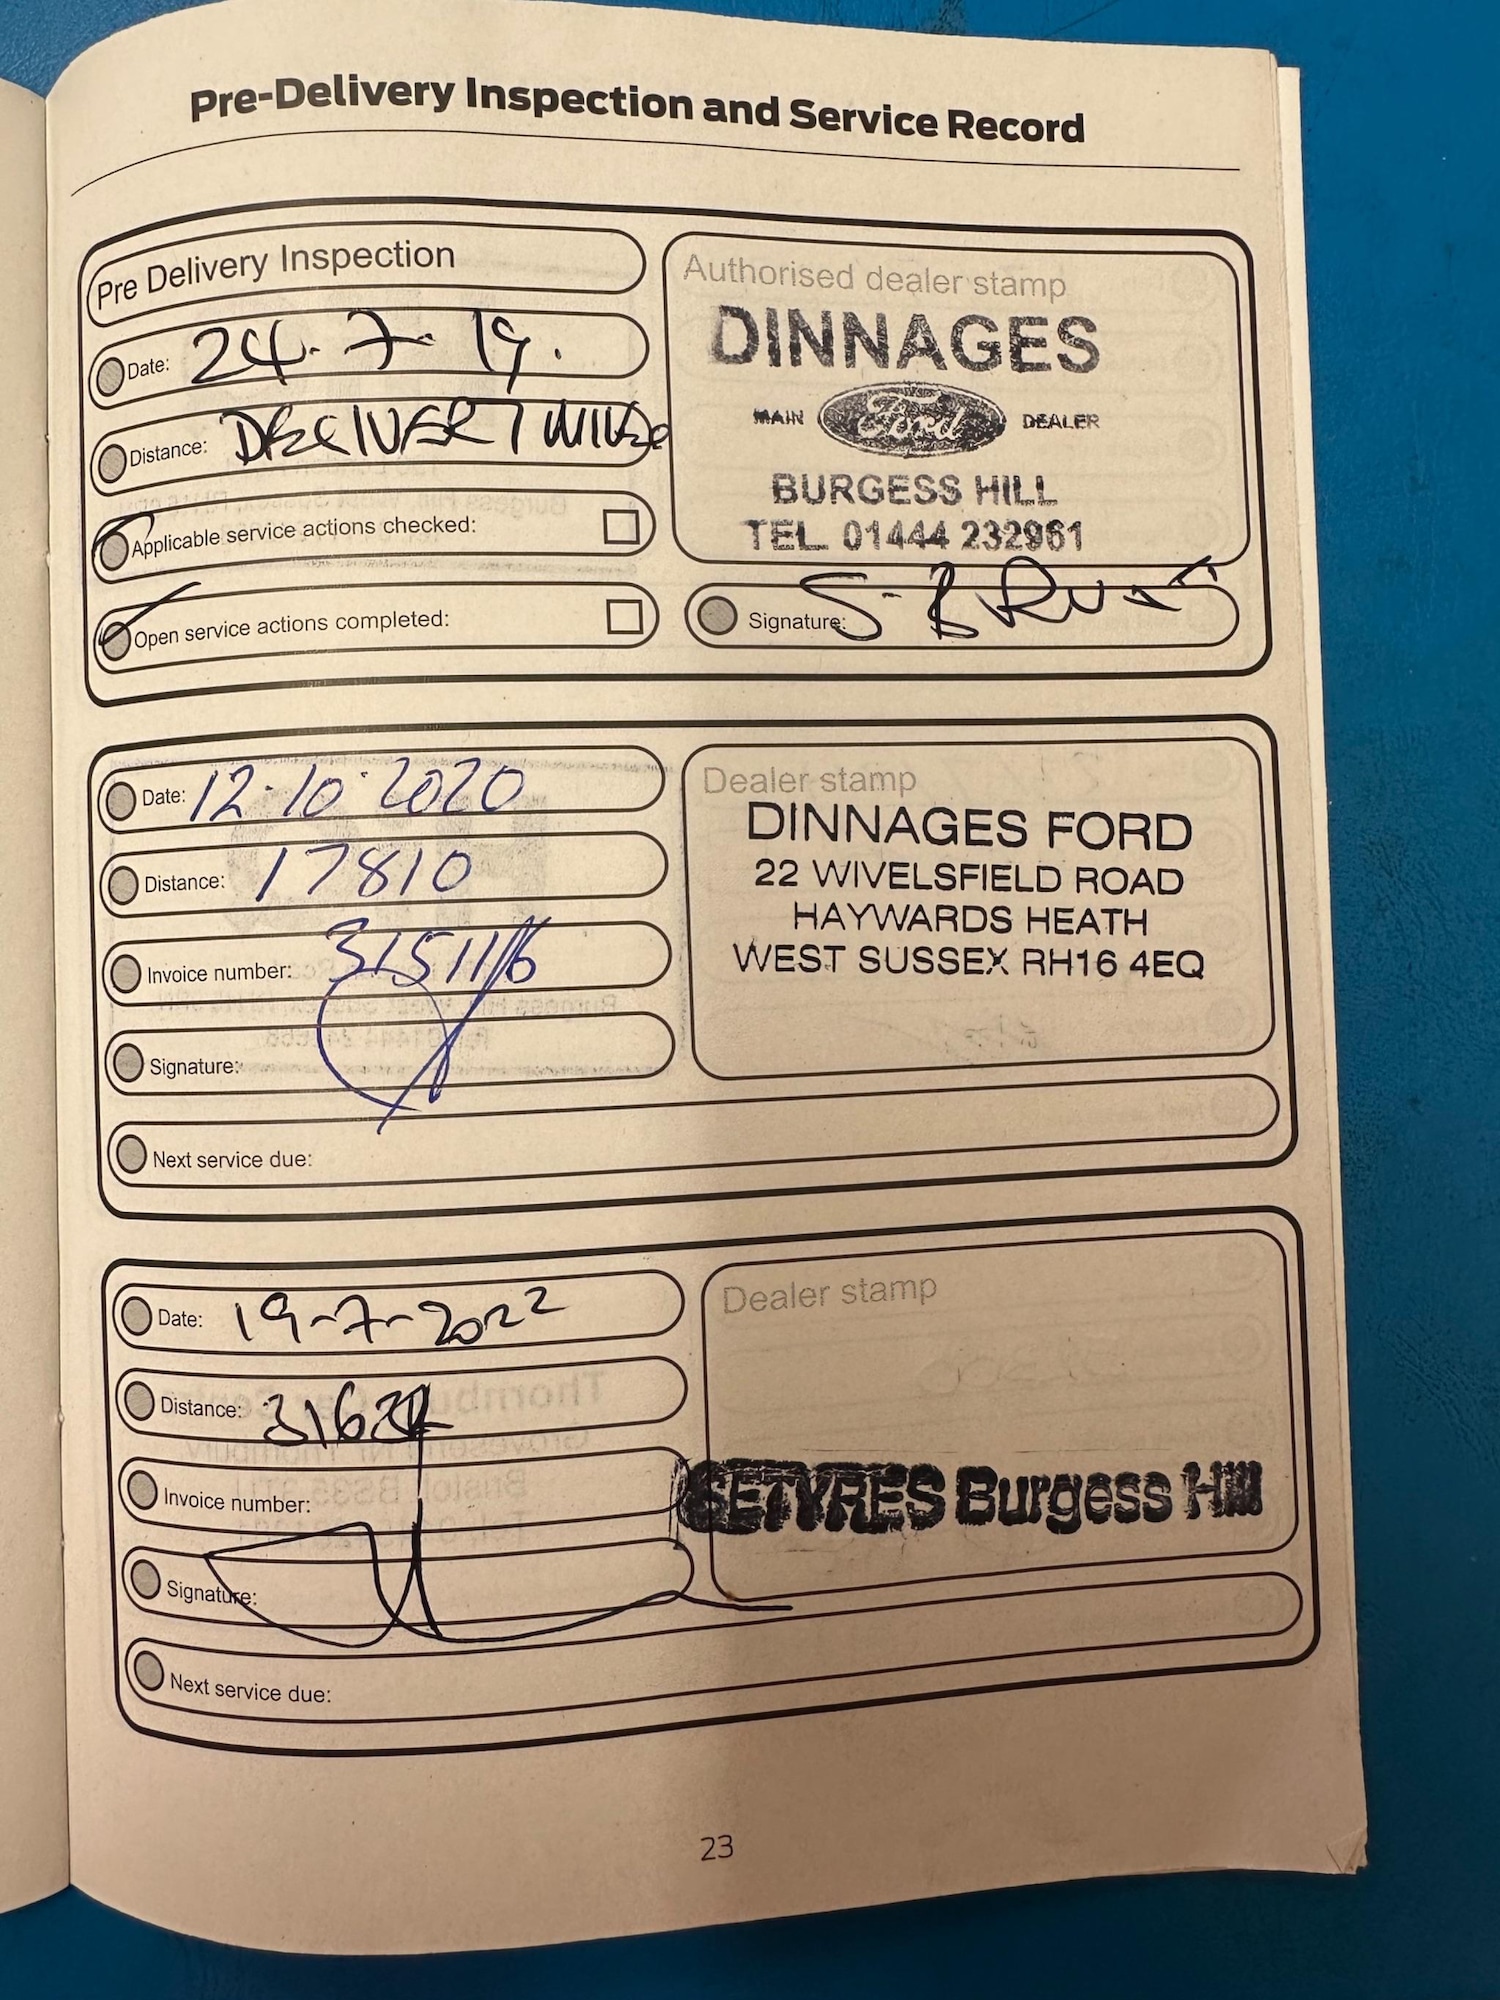 Pre-Delivery Inspection and Service Record
Pre Delivery Inspection
Date: 24-7-19.
Distance: DELIVERY MILES
Applicable service actions checked:
Open service actions completed:
Authorised dealer stamp
DINNAGES
MAIN Ford DEALER
BURGESS HILL
TEL 01444 232961
Signature:
Date: 12.10.2020
Distance: 17810
Invoice number: 315116
Signature:
Next service due:
Dealer stamp
DINNAGES FORD
22 WIVELSFIELD ROAD
HAYWARDS HEATH
WEST SUSSEX RH16 4EQ
Date: 19-7-2022
Distance:
Invoice number:
Signature:
Next service due:
Dealer stamp
SETYRES Burgess Hill
23